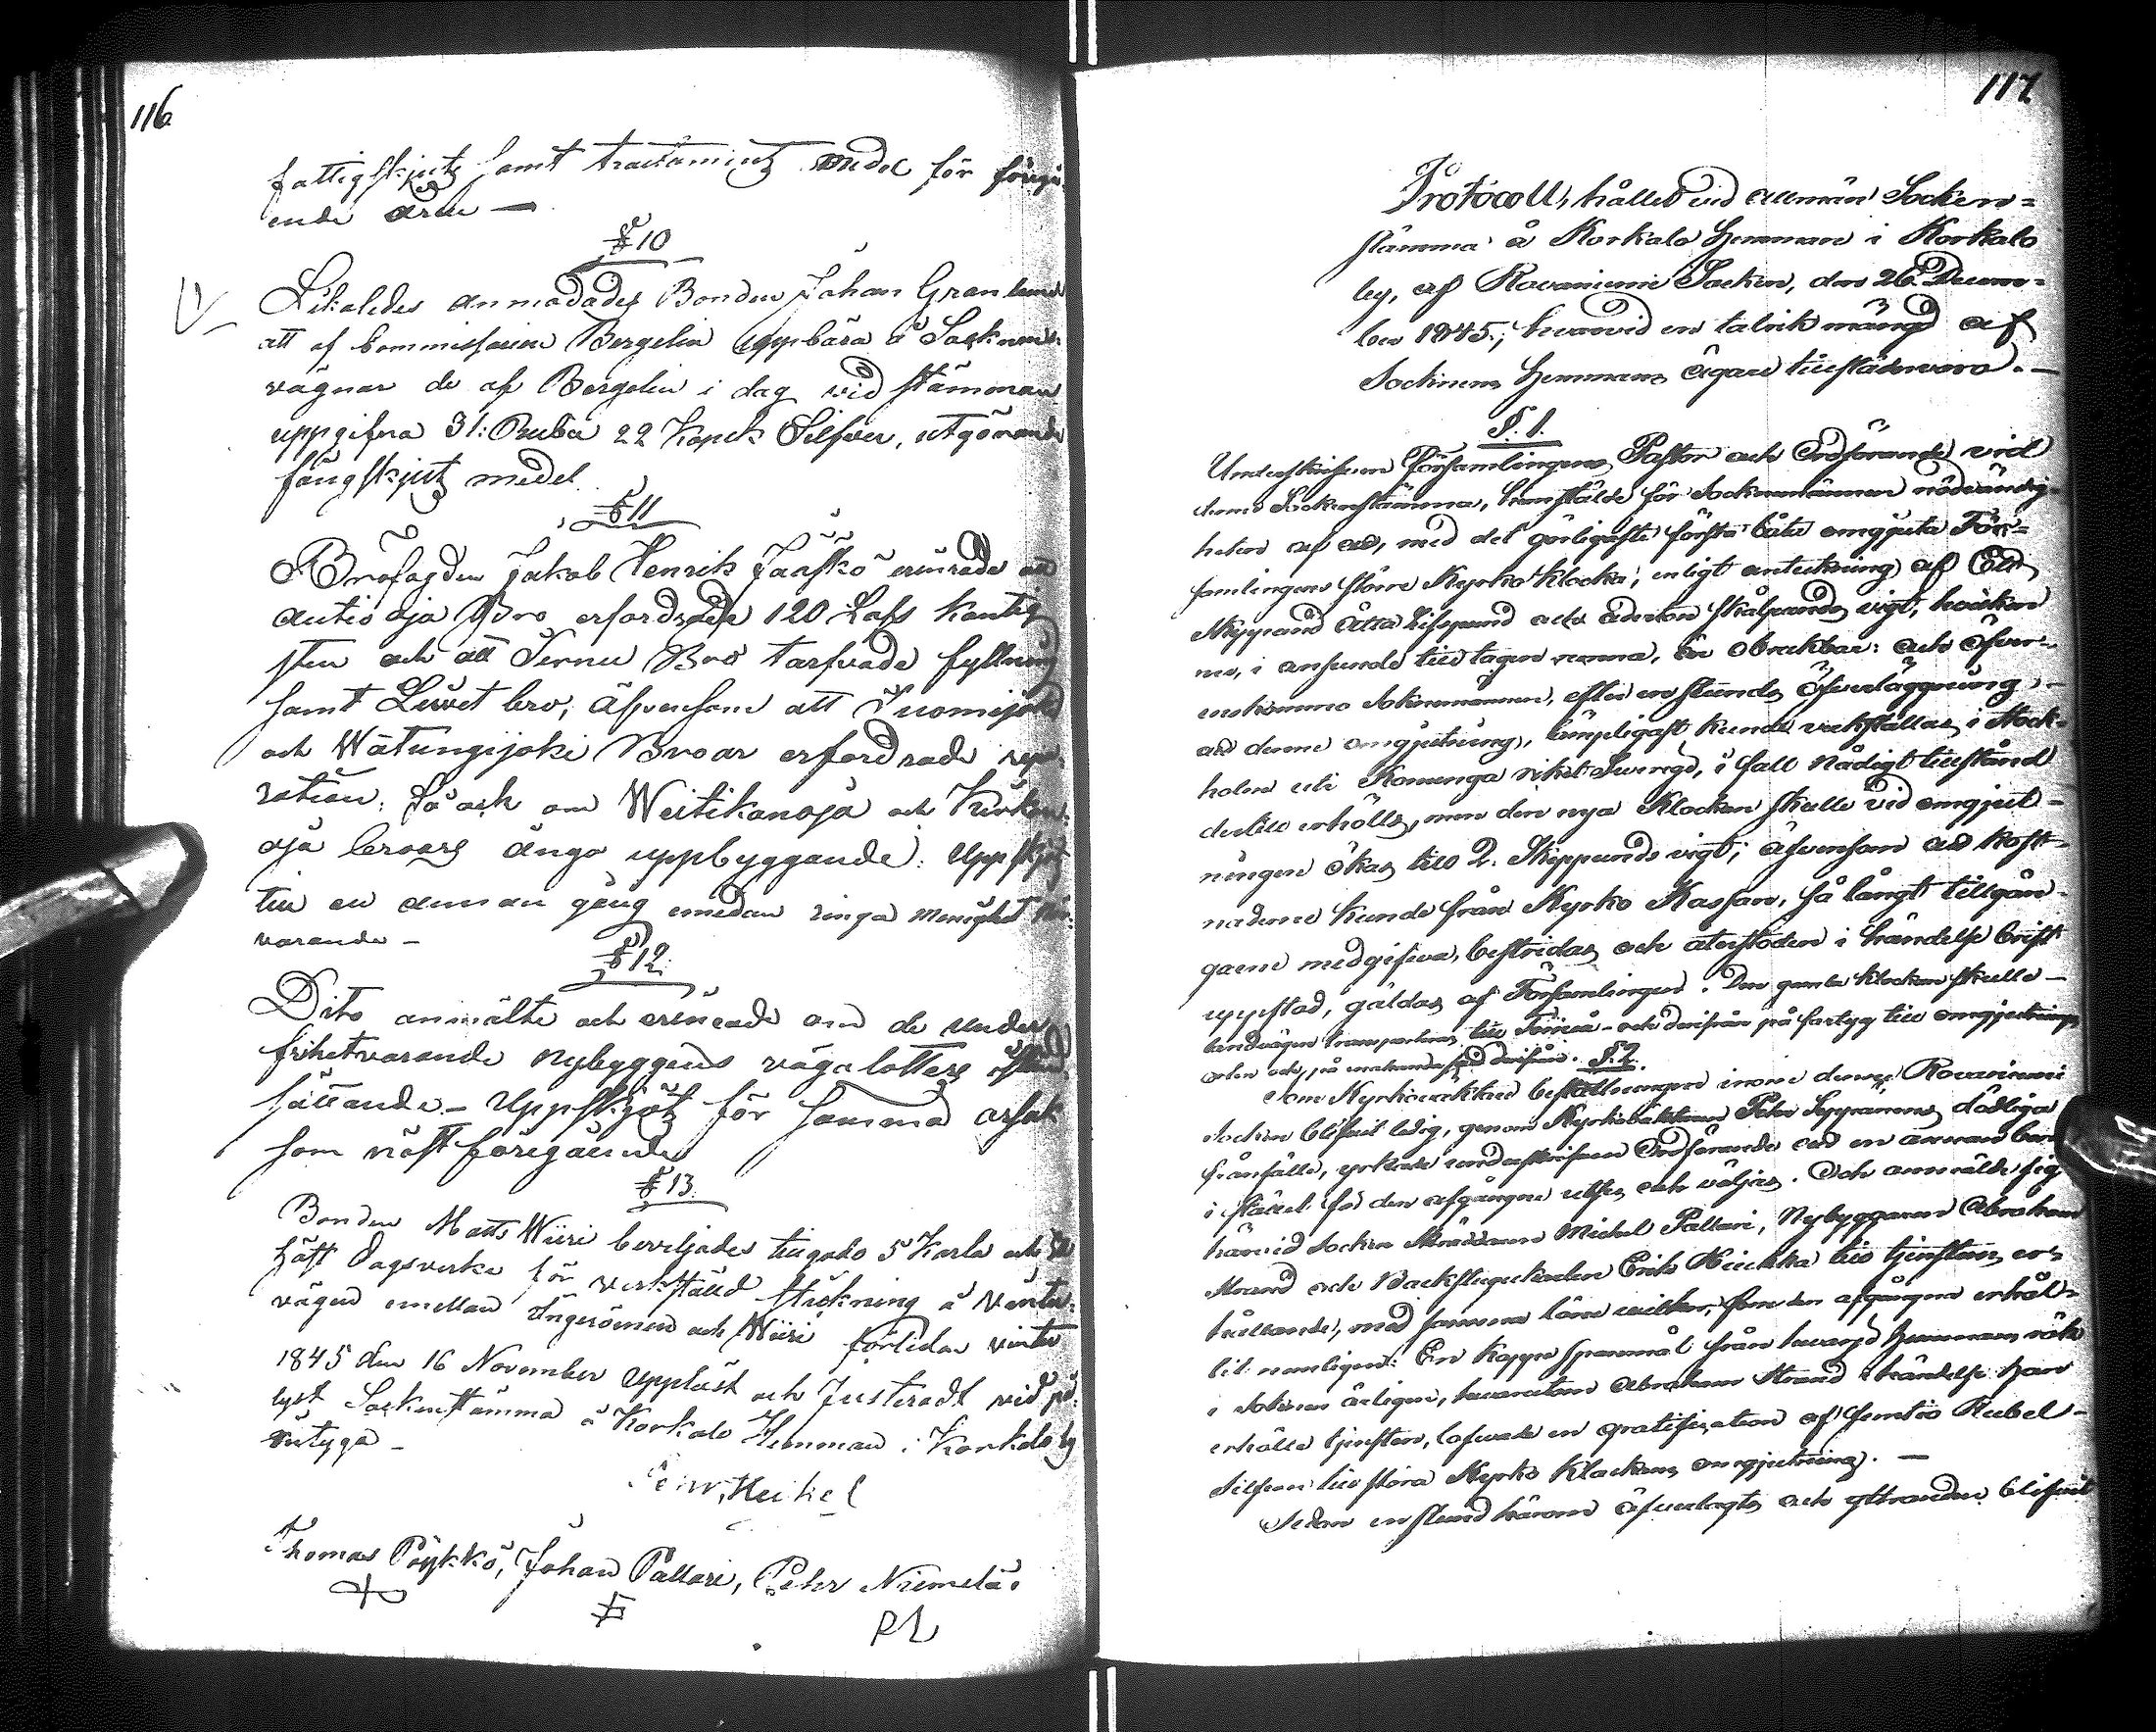 116.
fattigskjuts samt tractaments medel för föregå-
ende åren —
§ 10
Likaledes anmodades Bonden Johan Granlund
att af Commissarien Bergelin uppbära å Socknens
vägnar de af Bergelin i dag vid stämman
uppgifna 31: Rubel 22 Kopek Silfver, utgörande
fångskjuts medel.
§ 11
Brofogden Jakob Henrik Jaasko erinrade att
autio oja Bro erfordrade 120 Lass Kantig
sten och att Bro tarfvade fyllning
samt bro; äfvensom att Suomijoki
och Wätungijoki Broar erfordrade repa-
ration; så ock om Weitikanoja och
oja broars ånyo uppbyggande. Uppskjöts
till en annan gång emedan ringa menighet när-
varande —
§ 12.
Dito anmälte och erinrade om de under
frihetvarande nybyggens vägalotters
sättande — Uppskjöts för samma orsak
som näst föregående
§ 13.
Bonden Matts Wiiri beviljades tjugo 5 Karls och
häst dagsverke för verkställd stickning å Vinter-
vägen emellan och Wiiri förliden vinter
1845 den 16 November Uppläst och Justeradt vid på-
lyst Sockenstämma å Korkalo Hemman i Korkalo by
intyga —
Heikel
Thomas Pöykkö, Johan Pallari, Pehr Niemelä.
PL
117
Protocoll, hållet vid allmän Socken-
stämma å Korkalo Hemman i Korkalo
by, af Rovaniemi Socken, den 26. Decem-
ber 1845; hvarvid en talrik mängd af
Socknens Hemmans Ägare tillstädesvoro. —
§. 1.
Underskrifven Församlingens Pastor och Ordförande vid
denna Sockenstämma, hemstälde för Sockenmännen nödvändig-
heten af att, med det görligaste första låta omgjuta För-
samlingens större Kyrko Klocka, enligt anteckning af Ett
Skeppund Åtta Lispund och aderton skålpunds vigt, hvilken
nu, i anseende till tagen remna, är obrukbar: och öfver-
enskommo Sockenmännen, efter en stunds Öfverläggning, —
att denna omgjutning, lämpligast kunde verkställas i Stock-
holm uti Konunga riket Sverige, i fall Nådigt tillstånd
dertill erhölls, men den nya Klockan skulle vid omgjut-
ningen ökas till 2. Skeppunds vigt; äfvensom att kost-
naderne kunde från Kyrko Kassan, så långt tillgån-
garne medgifva, bestridas och återstoden i händelse brist
uppstod, gäldas af Församlingen. Den gamla klockan skulle —
landvägen transporteras till Torneå — och derifrån på fartyg till omgjutnings
orten och på enahanda sätt derifrån. §. 2.
Som Kyrkovaktare beställningen inom denna Rovaniemi
Socken blifvit ledig, genom Kyrkovaktaren Petter dödliga
frånfälle, yrkade underskrifven Ordförande att en annan borde
i stället för den afgångne utses och väljas. Och anmälde sig
härvid Socken Skräddaren Michel Pallari, Nybyggaren Abraham
Strand och Backstugukarlen Erik Kiukka till tjenstens er-
hållande, med samma löne vilkor, som den afgångne erhål-
lit nemligen: En Kappe spanmål från hvarje hemmans rök
i Socknen årligen, hvarutom Abraham Strand i händelse han
erhölle tjensten, lofvade en gratification af femtio Rubel —
Silfver till stora Kyrko Klockans omgjutning. —
Sedan en stund härom öfverlagts och yttranden blifvit